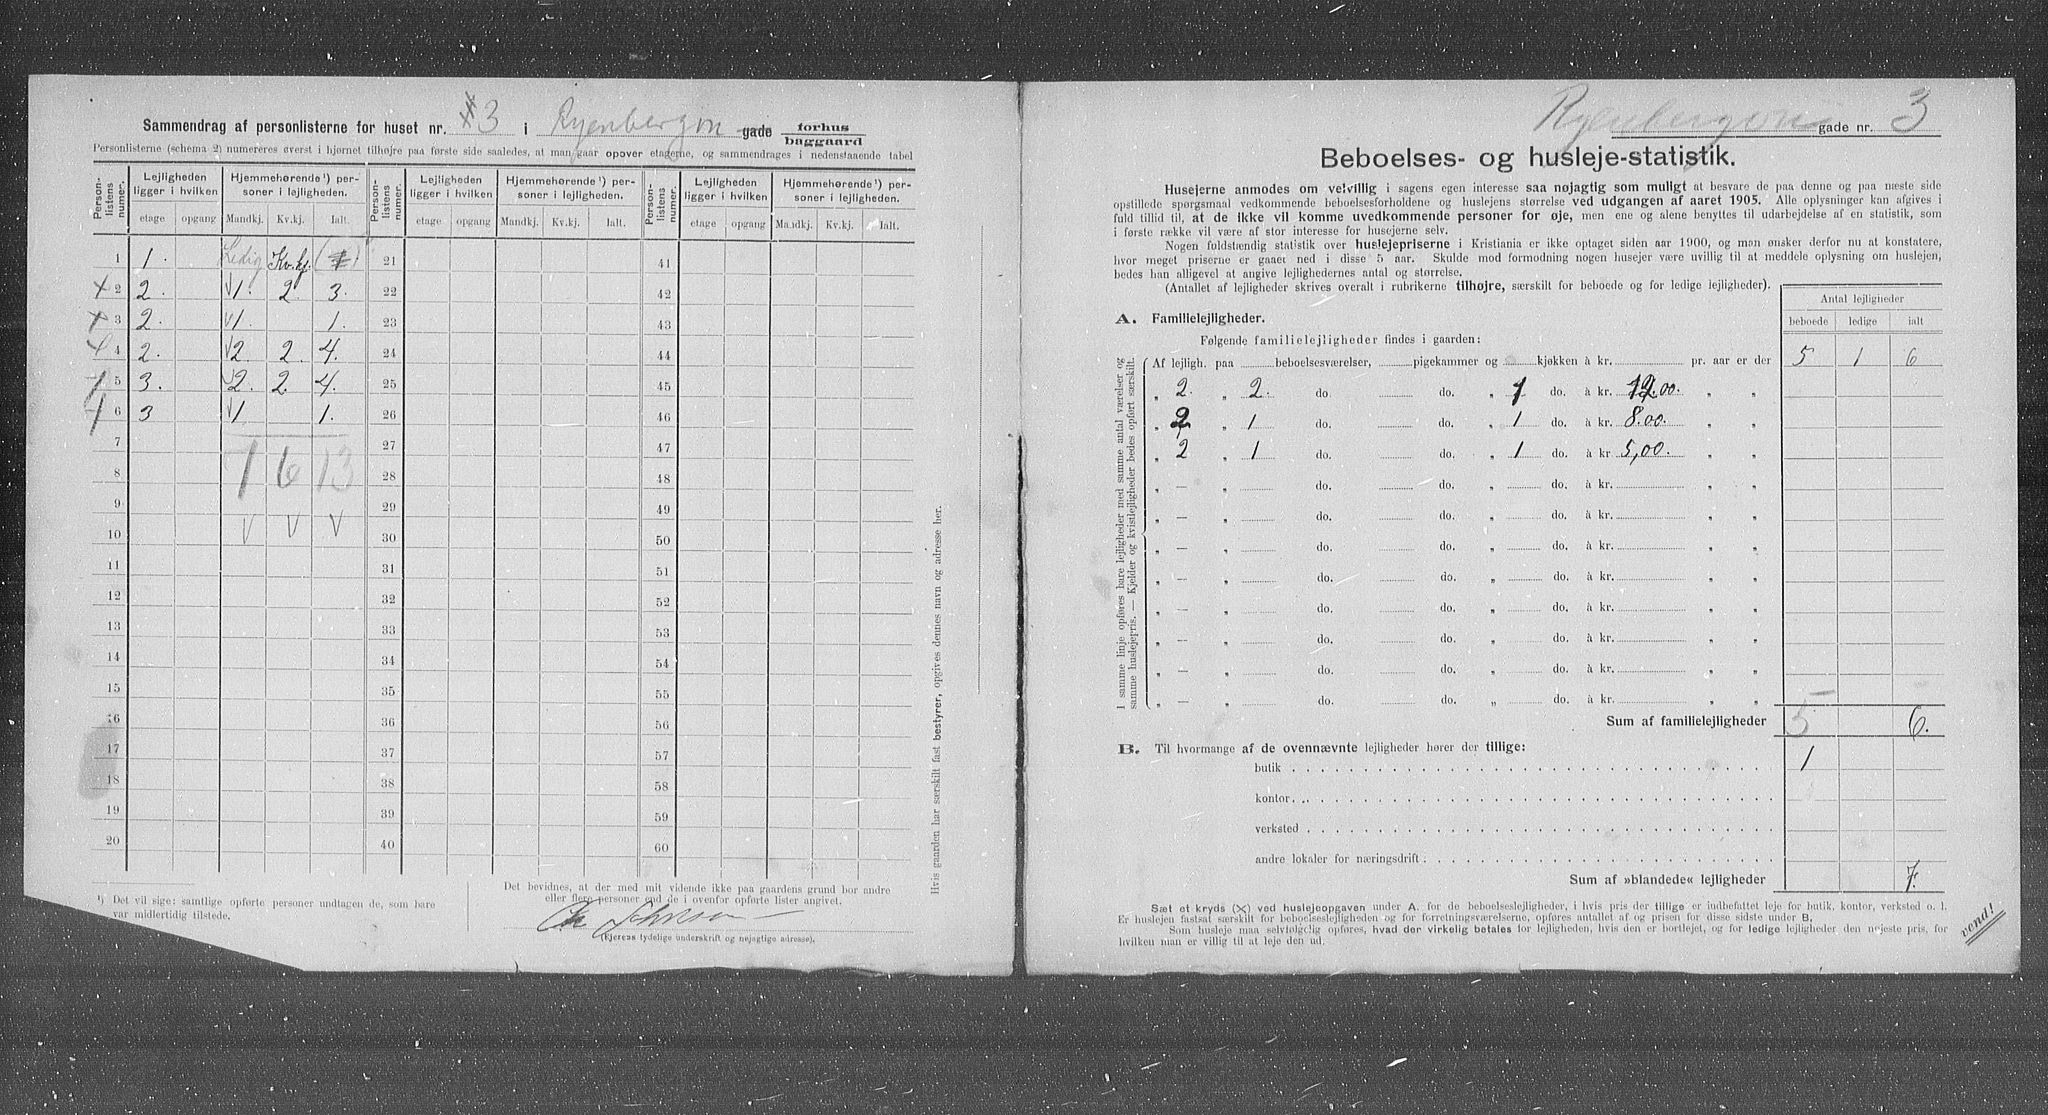 Sammendrag af personlisterne for huset nr. 3 i Ryenbergvn gade forhus baggaard
Personlisterne (schema 2) numereres øverst i hjørnet tilhøjre paa første side saaledes, at man gaar opover etagerne, og sammendrages i nedenstaaende tabel
Person-listens numer. Lejligheden ligger i hvilken Hjemmehørende ¹) personer i lejligheden. Person-listens numer. Lejligheden ligger i hvilken Hjemmehørende ¹) personer i lejligheden. Person-listens numer. Lejligheden ligger i hvilken Hjemmehørende ¹) personer i lejligheden.
etage opgang Mandkj. Kv.kj. Ialt. etage opgang Mandkj. Kv.kj. Ialt. etage opgang Mandkj. Kv.kj. Ialt.
1 1. Ledig Kv.kj. 21 41
× 2 2. √1. 2 3. 22 42
× 3 2. √1. 1. 23 43
4 2. √2 2 4. 24 44
5 3. √2. 2. 4. 25 45
6 3 √1 1. 26 46
7 27 47
7 6 13
8 28 48
9 29 49
V V V
10 30 50
11 31 51
12 32 52
13 33 53
14 34 54
15 35 55
16 36 56
17 37 57
18 38 58
19 39 59
20 40 60
¹) Det vil sige: samtlige opførte personer undtagen de, som bare var midlertidig tilstede.
Det bevidnes, at der med mit vidende ikke paa gaardens grund bor andre
eller flere personer end de i ovenfor opførte lister angivet.
(Ejerens tydelige underskrift og nøjagtige adresse).
Hvis gaarden har særskilt fast bestyrer, opgives dennes navn og adresse her.
Ryenbergvn gade nr. 3
Beboelses- og husleje-statistik.
Husejerne anmodes om velvillig i sagens egen interesse saa nøjagtig som muligt at besvare de paa denne og paa næste side
opstillede spørgsmaal vedkommende beboelsesforholdene og huslejens størrelse ved udgangen af aaret 1905. Alle oplysninger kan afgives i
fuld tillid til, at de ikke vil komme uvedkommende personer for øje, men ene og alene benyttes til udarbejdelse af en statistik, som
i første række vil være af stor interesse for husejerne selv.
Nogen fuldstændig statistik over huslejepriserne i Kristiania er ikke optaget siden aar 1900, og man ønsker derfor nu at konstatere,
hvor meget priserne er gaaet ned i disse 5 aar. Skulde mod formodning nogen husejer være uvillig til at meddele oplysning om huslejen,
bedes han alligevel at angive lejlighedernes antal og størrelse.
(Antallet af lejligheder skrives overalt i rubrikerne tilhøjre, særskilt for beboede og for ledige lejligheder).
Antal lejligheder
beboede ledige ialt
A. Familielejligheder.
Følgende familielejligheder findes i gaarden:
Af lejligh. paa beboelsesværelser, pigekammer og kjøkken à kr. pr. aar er der 5 1 6
„ 2. „ 2. do. do. „ 1 do. à kr. 12.00. „ „
„ 2 „ 1 do. do. „ 1 do. à kr. 8.00. „ „
„ 2 „ 1 do. do. „ 1 do. à kr 5,00. „ „
„ — „ do. do. „ do. à kr. „ „
„ — „ do. do. „ do. à kr. „ „
„ — „ do. do. „ do. à kr. „ „
„ — „ do. do. „ do. à kr. „ „
„ — „ do. do. „ do. à kr. „ „
„ — „ do. do. „ do. à kr. „ „
„ — „ do. do. „ do. à kr. „ „
„ — „ do. do. „ do. à kr. „ „
I samme linje opføres bare lejligheder med samme antal værelser og
samme huslejepris. — Kjelder og kvistlejligheder bedes opført særskilt.
Sum af familielejligheder 5 6.
B. Til hvormange af de ovennævnte lejligheder hører der tillige:
butik 1
kontor
verksted
andre lokaler for næringsdrift
Sum af »blandede« lejligheder 7.
Sæt et kryds (×) ved huslejeopgaven under A. for de beboelseslejligheder, i hvis pris der tillige er indbefattet leje for butik, kontor, verksted o. l.
Er huslejen fastsat særskilt for beboelseslejligheden og for forretningsværelserne, opføres antallet af og prisen for disse sidste under B.
Som husleje maa selvfølgelig opføres, hvad der virkelig betales for lejligheden, hvis den er bortlejet, og for ledige lejligheder den nøjeste pris, for
hvilken man er villig til at leje den ud.
vend!